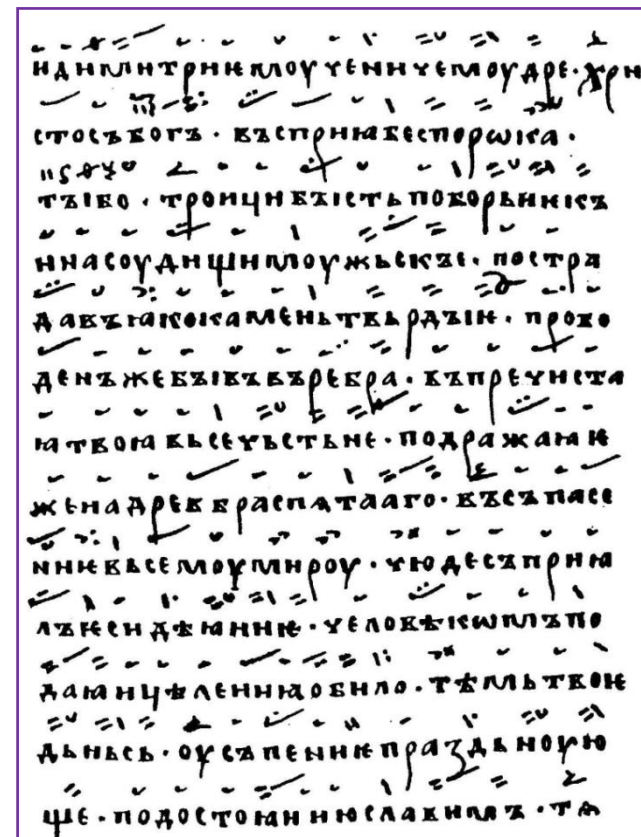 и димитриѥ моученичє моудре · хри
стосъ богъ · въсприꙗ бес порѡка ·
тꙑ бо · троици бꙑсть поборьникъ
и на соудищи моужьскꙑ · постра
давъ ꙗко камень твьрдꙑи · пробо
денъ же бꙑвъ въ ребра · въ пречиста
ꙗ твоꙗ вьсечьстьне · подражаꙗ ѥ
же на древѣ распѧтааго · въ съпасе
ниѥ вьсемоу мироу · чюдесъприꙗ
лъ ѥси дѣꙗниѥ · человѣкѡмъ по
даꙗ ицѣлениꙗ обило · тѣмь твоѥ
дьньсь · оусъпениѥ праздьноую
ще · по достоꙗнию славимъ · тѧ